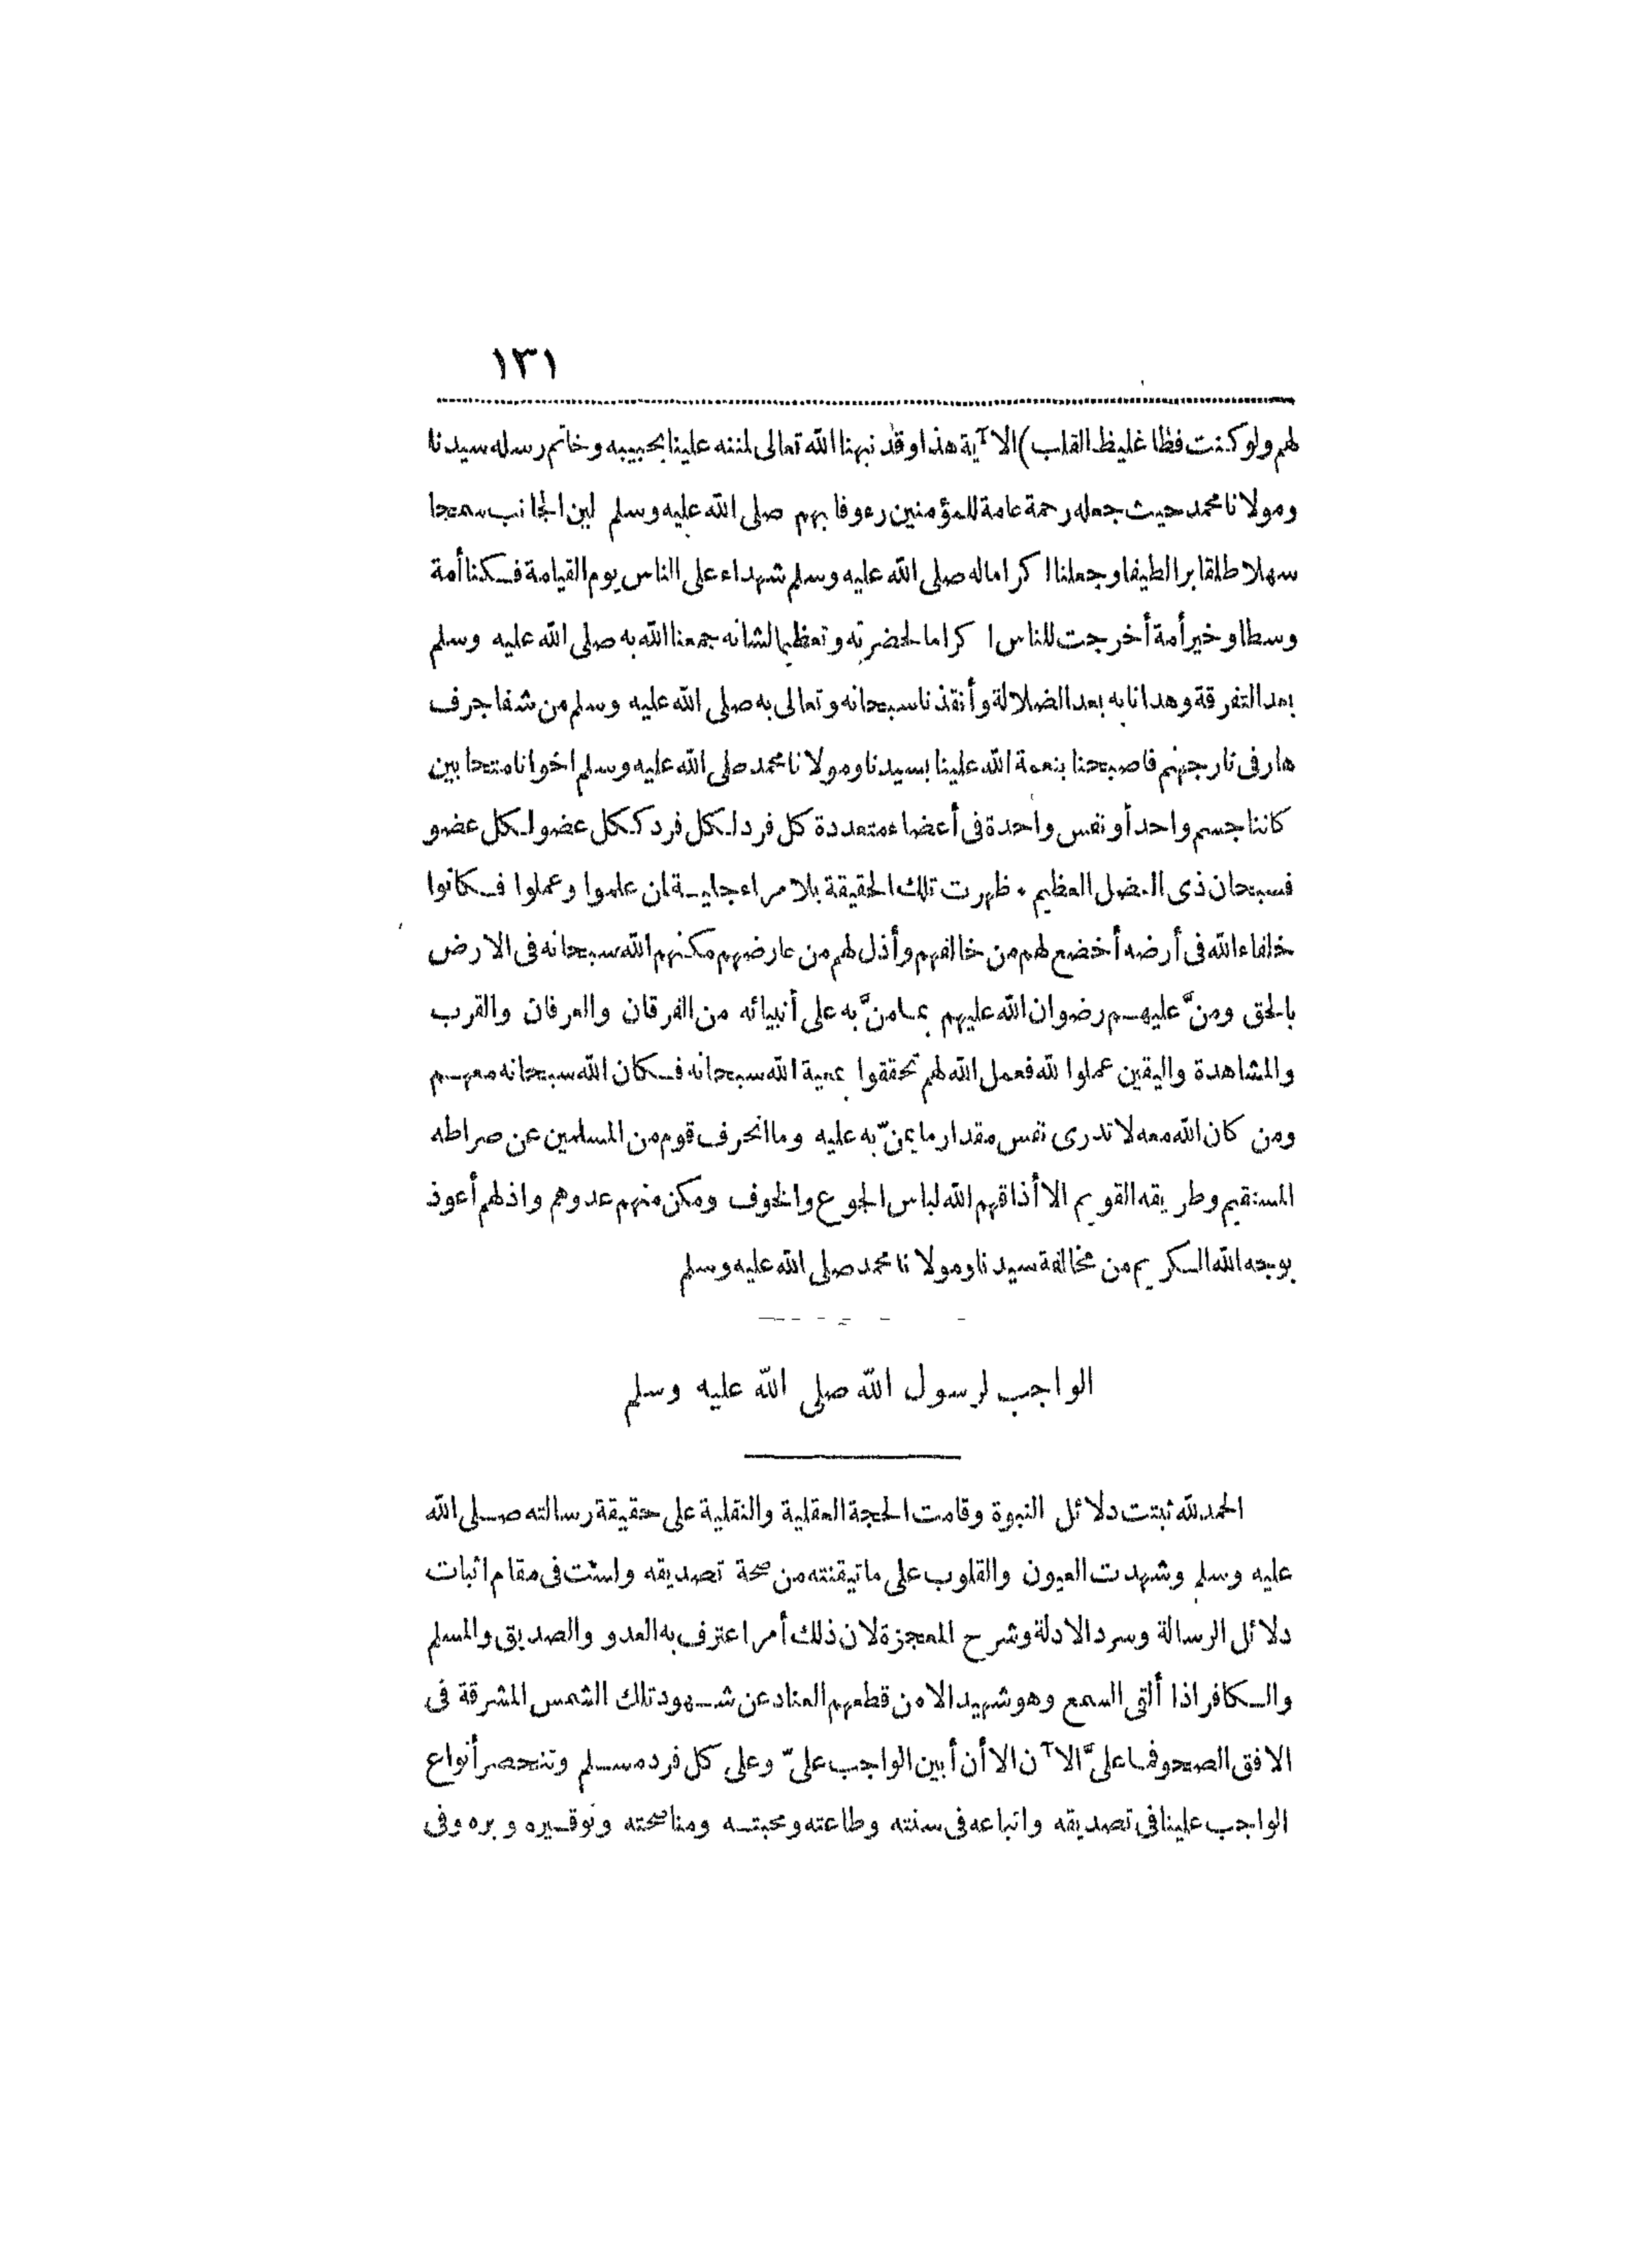 ١٣١
لهم ولو كنت فظا غليظ القلب) الآية هذا وقد نبهنا الله تعالى لمننه علينا بحبيبه وخاتم رسله سيدنا
ومولانا محمد حيث جعله رحمة عامة للمؤمنين رءوفا بهم صلى الله عليه وسلم لين الجانب سمحا
سهلا طلقا برا لطيفا وجعلنا اكراما له صلى الله عليه وسلم شهداء على الناس يوم القيامة فكنا أمة
وسطا وخير أمة أخرجت للناس اكراما لحضرته وتعظيما لشانه جمعنا الله به صلى الله عليه وسلم
بعد التفرقة وهدانا به بعد الضلالة وأنقذنا سبحانه وتعالى به صلى الله عليه وسلم من شفا جرف
هار فى نار جهنم فاصبحنا بنعمة الله علينا بسيدنا ومولانا محمد صلى الله عليه وسلم اخوانا متحابين
كاننا جسم واحد أو نفس واحدة فى أعضاء متعددة كل فرد لكل فرد ككل عضو لكل عضو
فسبحان ذى الفضل العظيم . ظهرت تلك الحقيقة بلا مراء جلية لمن علموا وعملوا فكانوا
خلفاء الله فى أرضه أخضع لهم من خالفهم وأذل لهم من عارضهم مكنهم الله سبحانه فى الارض
بالحق ومنَّ عليهم رضوان الله عليهم بما منَّ به على أنبيائه من الفرقان والعرفان والقرب
والمشاهدة واليقين عملوا لله فعمل الله لهم تحققوا بمعية الله سبحانه فكان الله سبحانه معهم
ومن كان الله معه لا تدرى نفس مقدار ما يمنّ به عليه وما انحرف قوم من المسلمين عن صراطه
المستقيم وطريقه القويم الا أذاقهم الله لباس الجوع والخوف ومكن منهم عدوهم واذلهم أعوذ
بوجه الله الكريم من مخالفة سيدنا ومولانا محمد صلى الله عليه وسلم
الواجب لرسول الله صلى الله عليه وسلم
الحمد لله ثبتت دلائل النبوة وقامت الحجة العقلية والنقلية على حقيقة رسالته صلى الله
عليه وسلم وشهدت العيون والقلوب على ما تيقنته من صحة تصديقه ولست فى مقام اثبات
دلائل الرسالة وسرد الادلة وشرح المعجزة لان ذلك أمر اعترف به العدو والصديق والمسلم
والكافر اذا ألقى السمع وهو شهيد الا من قطعهم العناد عن شهود تلك الشمس المشرقة فى
الافق الصحو فما علىَّ الآن الا أن أبين الواجب علىّ وعلى كل فرد مسلم وتنحصر أنواع
الواجب علينا فى تصديقه واتباعه فى سنته وطاعته ومحبته ومناصحته وتوقيره وبره وفى